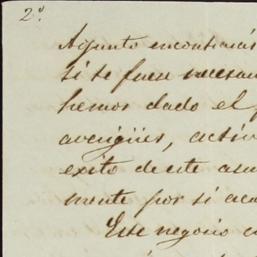 2º
Adjunto encontrarás
si te fuese necesar
hemos dado el
averigües, activ
exito de este asu
mente por si aca
Este negocio e